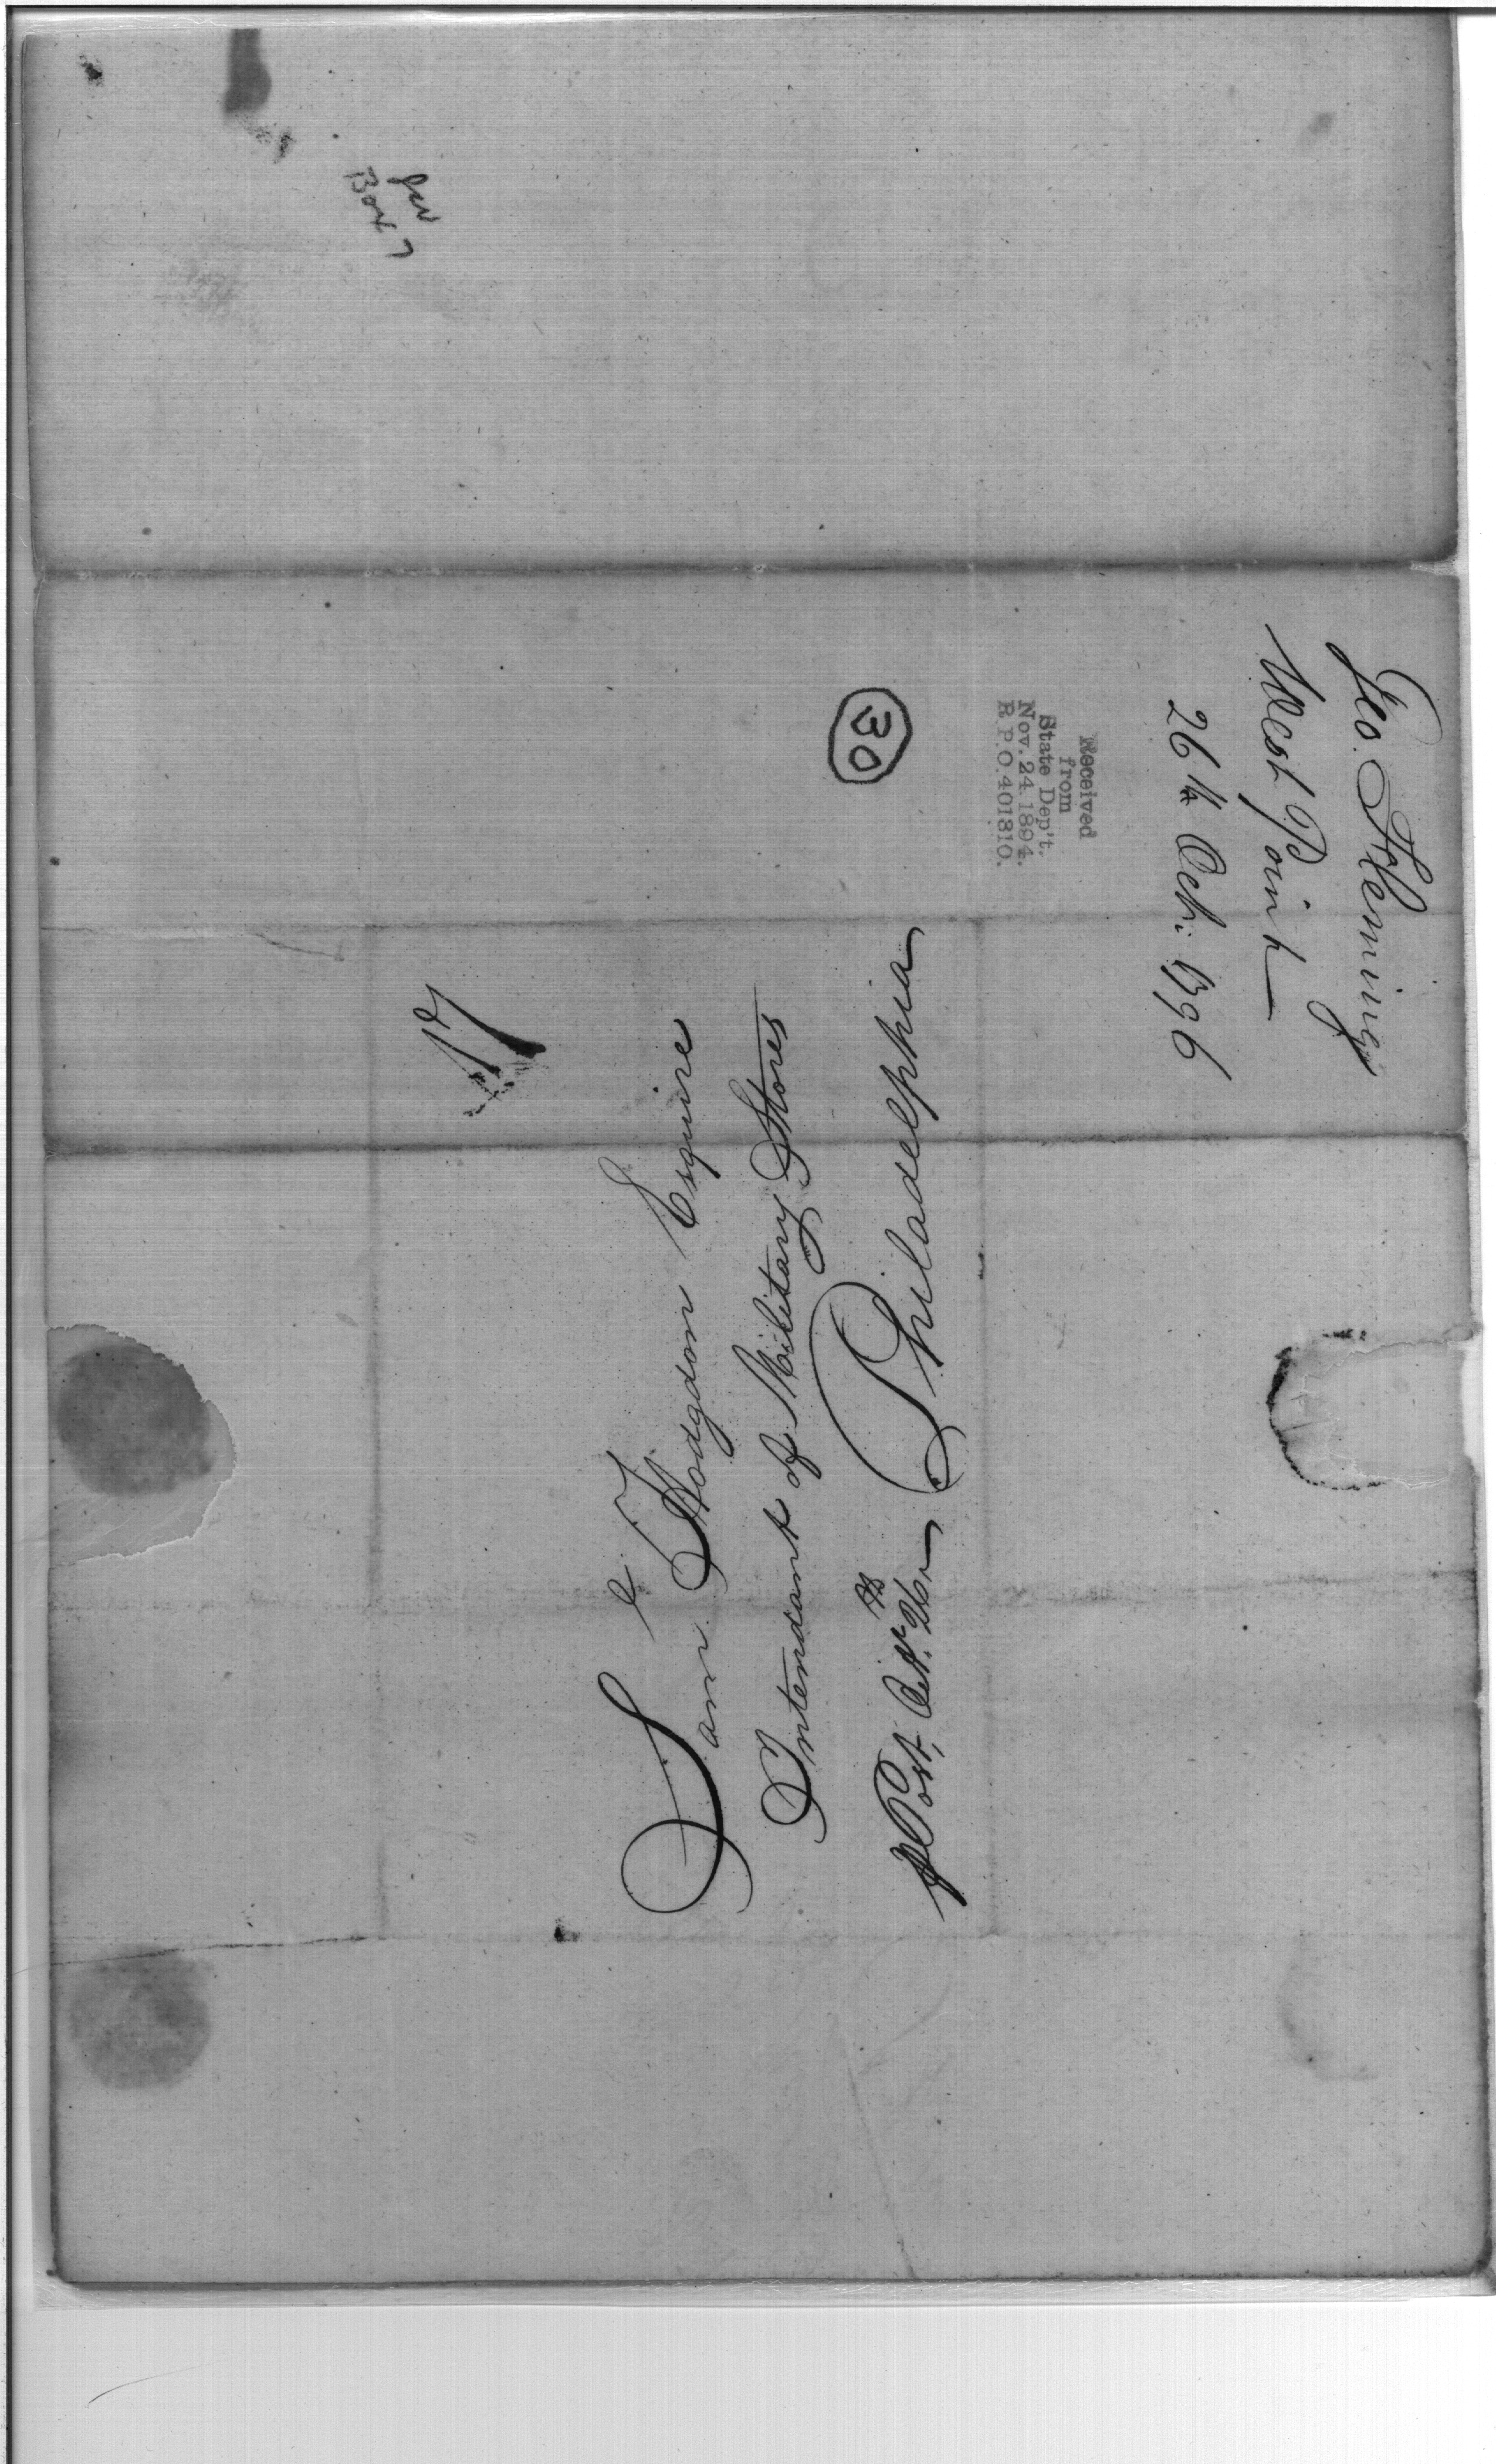 Geo. Fleming
West Point
26th Octr. 1796
Received
from
State Dep't.
Nov. 24 1894.
R.P.O. 401810.
30
Box 7
17
Saml Hodgdon Esquire
Intendant of Military Stores
Philadelphia
pPost, Octr. 26th